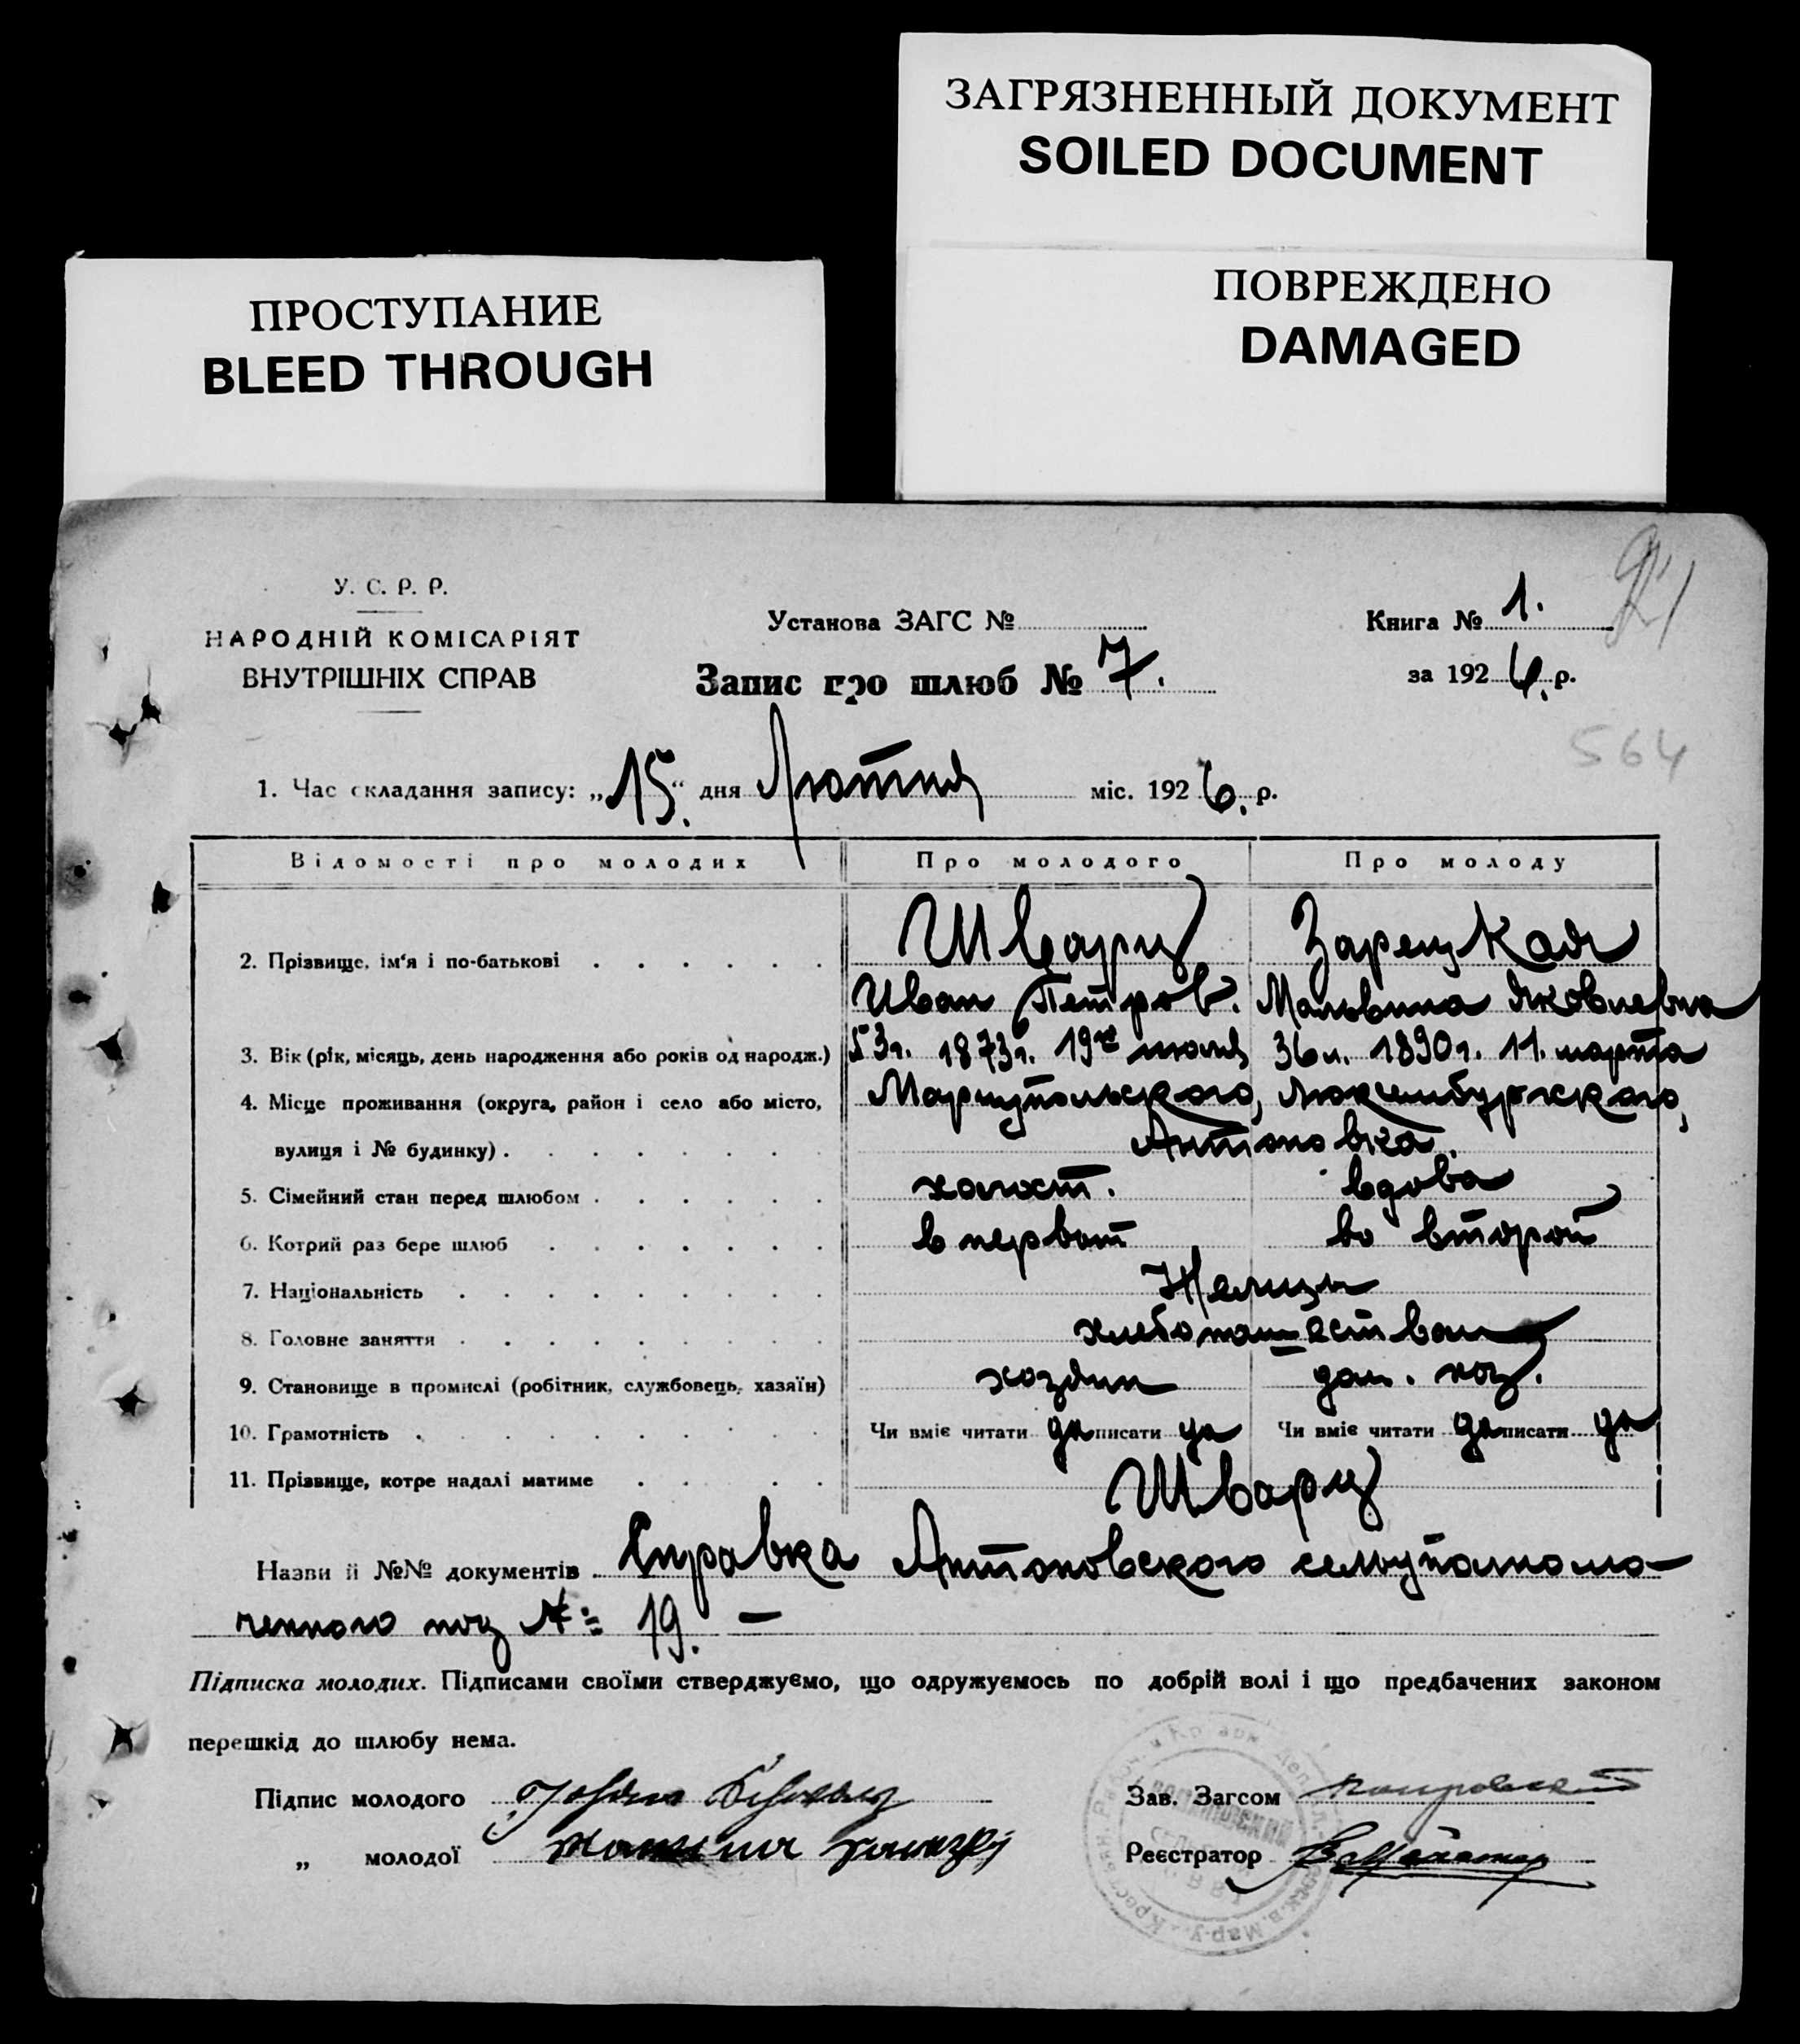 ЗАГРЯЗНЕННЫЙ ДОКУМЕНТ
SOILED DOCUMENT
ПОВРЕЖДЕНО
DAMAGED
ПРОСТУПАНИЕ
BLEED THROUGH
У. С. Р. Р.
НАРОДНІЙ КОМІСАРІЯТ
ВНУТРІШНІХ СПРАВ
Установа ЗАГС №
Книга № 1.
Запис про шлюб № 7.
за 1926. р.
564
1. Час складання запису: „15.“ дня Лютня міс. 1926. р.
Відомості про молодих Про молодого Про молоду
2. Прізвище, ім'я і по-батькові Шварц Зарецкая
Иван Петров. Мальвина Яковлевна
3. Вік (рік, місяць, день народження або років од народж.) 53г. 1873г. 19го июля 36л. 1890г. 11. марта
4. Місце проживання (округа, район і село або місто, Мариупольского, Люксембургского,
вулиця і № будинку) Антоновка.
5. Сімейний стан перед шлюбом холост. вдова
6. Котрий раз бере шлюб в первый во второй
7. Національність Немцы
8. Головне заняття хлебопашество
9. Становище в промислі (робітник, службовець, хазяїн) хозяин дом. хоз.
10. Грамотність Чи вміє читати да писати да Чи вміє читати да писати да
11. Прізвище, котре надалі матиме Шварц
Назви й №№ документів Справка Антоновского сельуполномо-
ченного под №= 19. —
Підписка молодих. Підписами своїми стверджуємо, що одружуємось по добрій волі і що предбачених законом
перешкід до шлюбу нема.
Підпис молодого
Зав. Загсом
„ молодої
Реєстратор